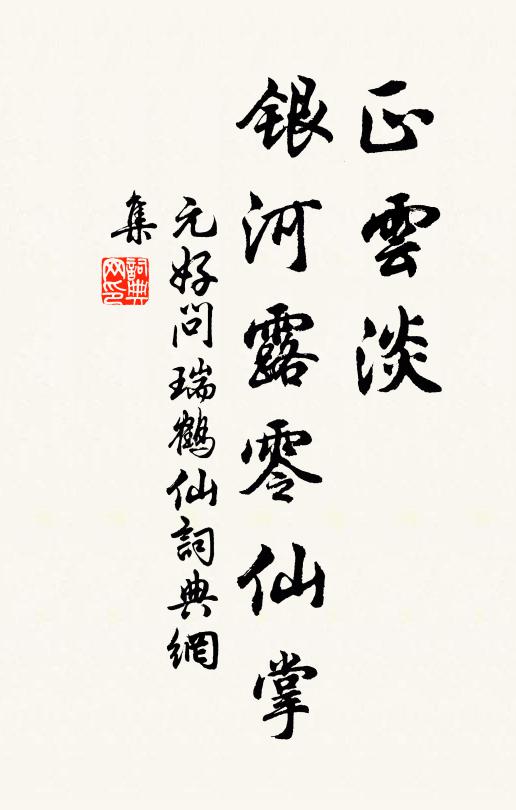 正雲淡
銀河露零仙掌
元好問瑞鶴仙詞典網
集
詞典網印